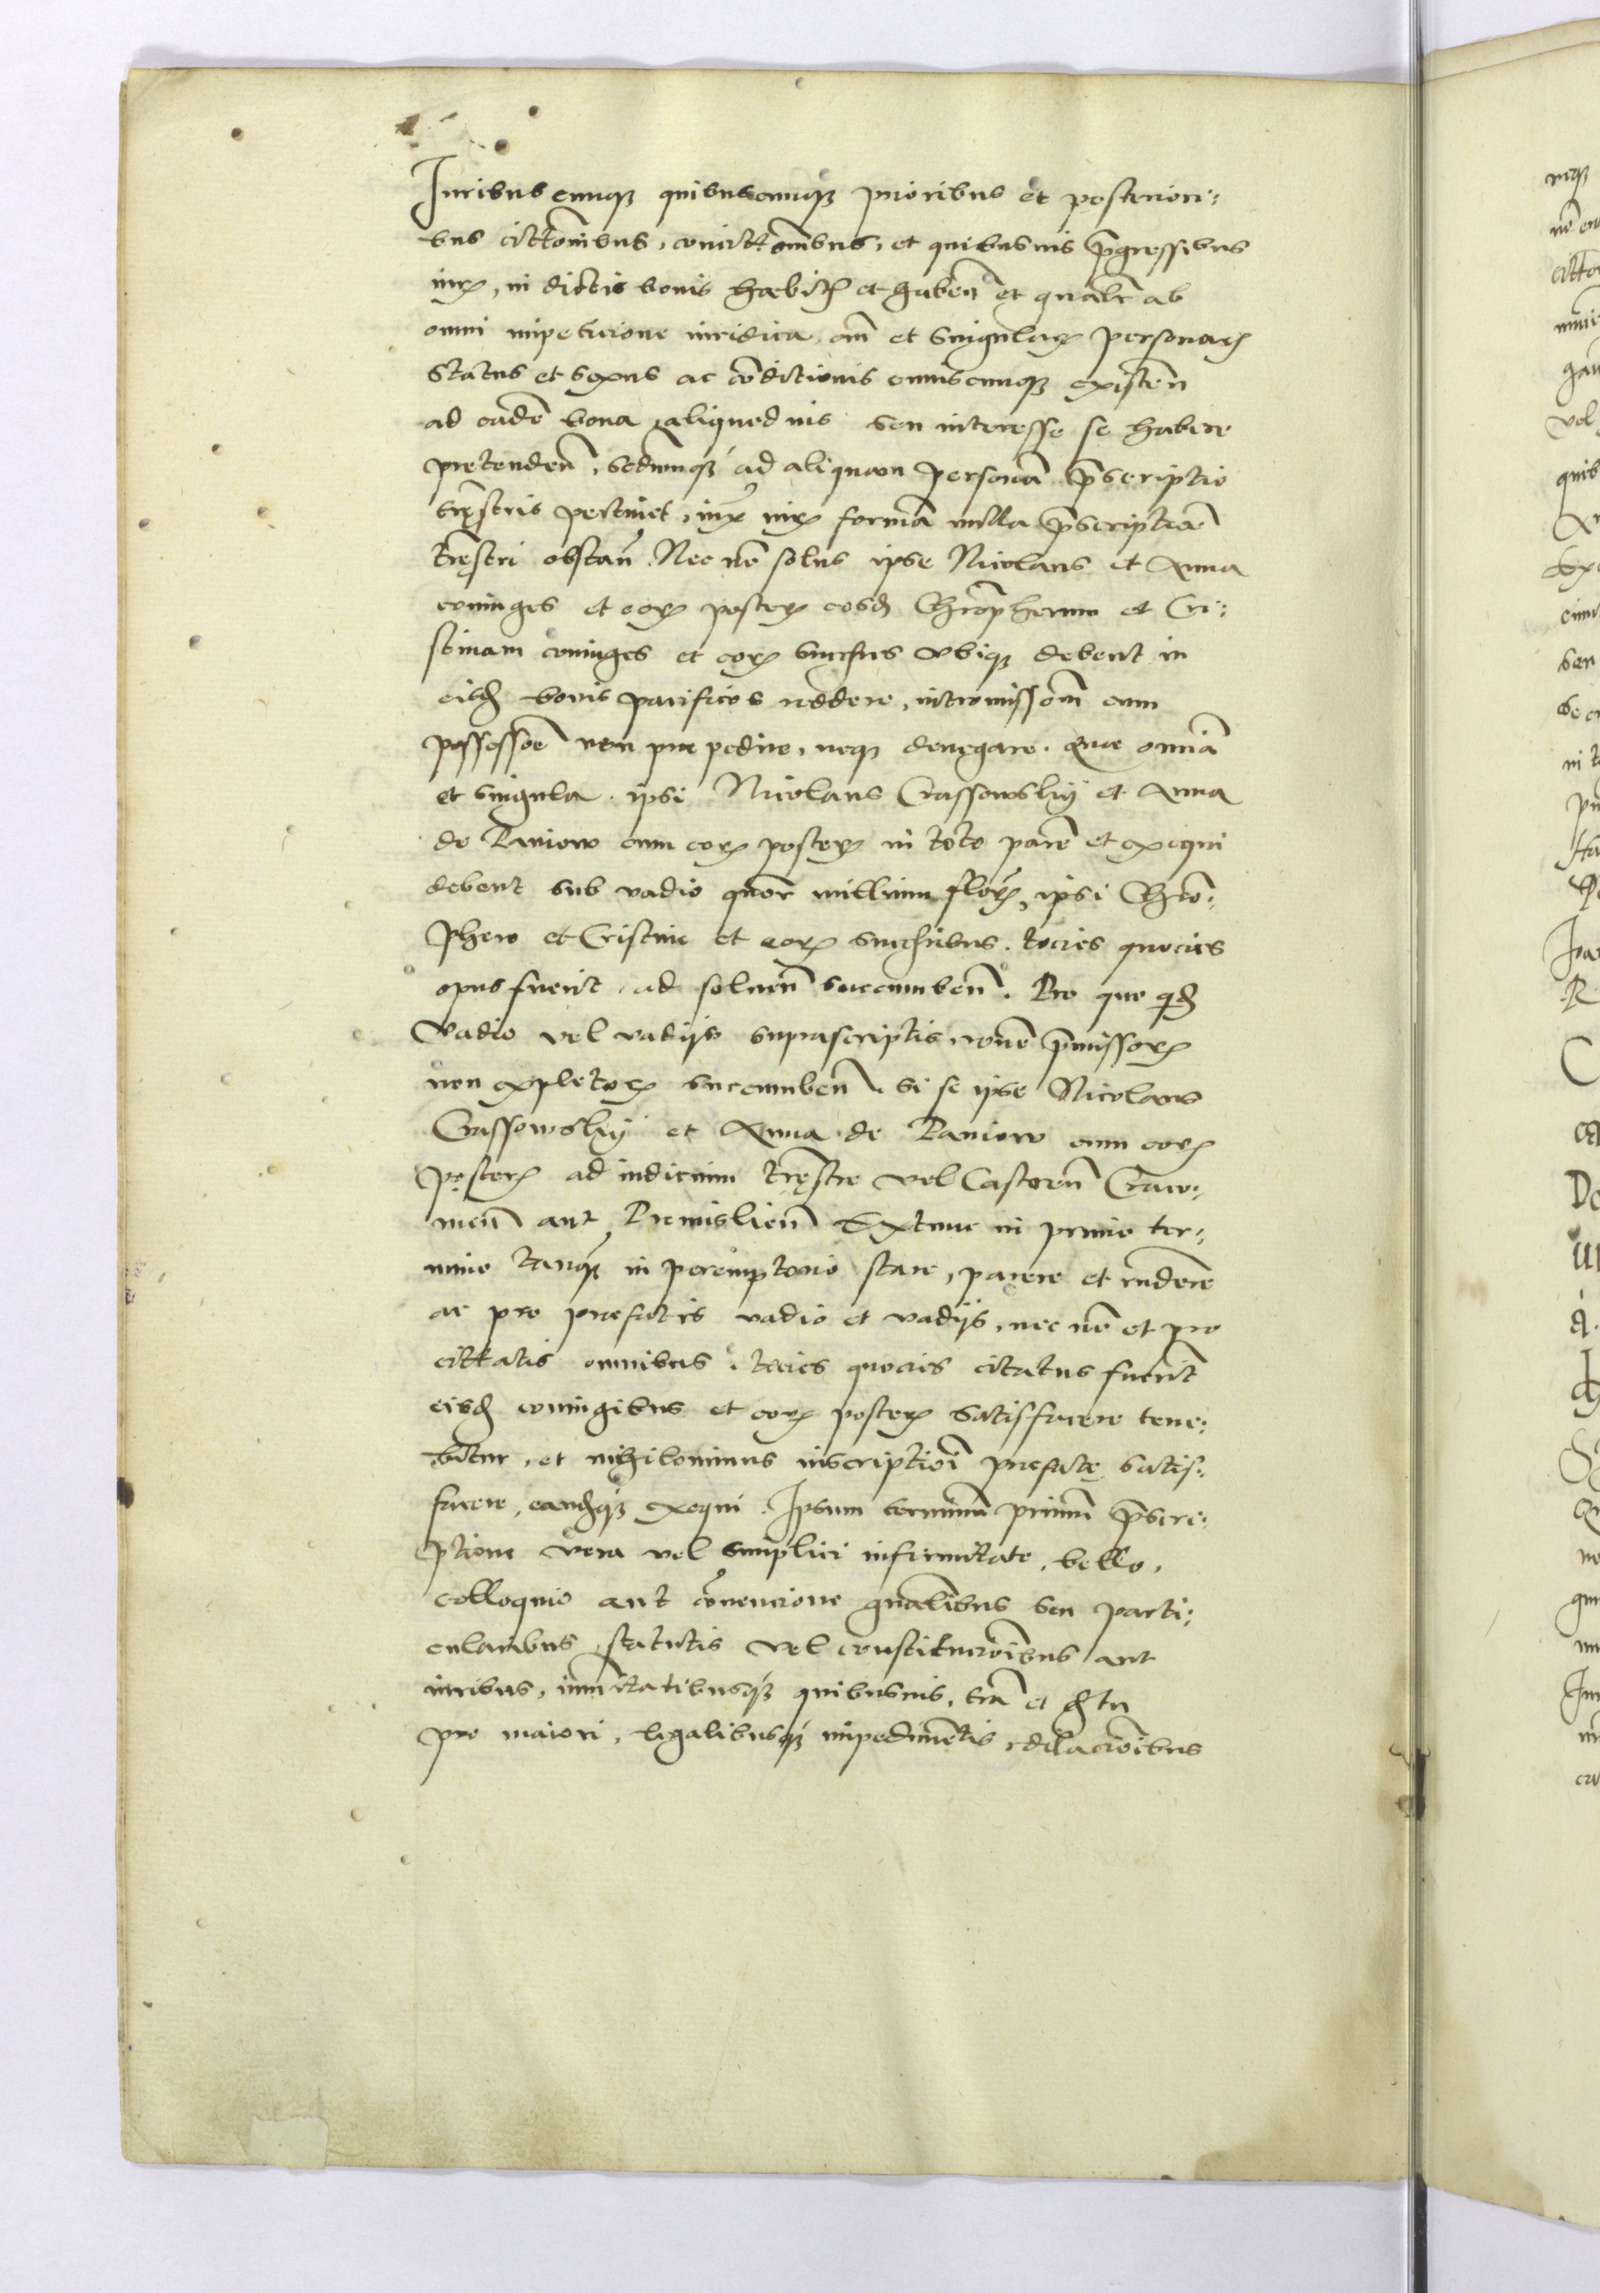 Iuribus cuiusq́ꝫ quibuscumqꝫ prioribus et posteriori:
bus cittōnibus, convictōnibus, et quibusvis ꝓgressibus
iurꝫ, in dictis bonis habitꝭ et habeñ et qualr̄ ab
omni impeticione iuridica, om̄ et singularꝫ personarꝫ
status et sexus ac cōdicionis cuiuscumqꝫ existeñ
ad eadē bona aliquod ius seu interesse se habere
pretendeñ, sedumqꝫ ad aliquam personā p̄scriptio
tr̄estris pertinet, iux̄ iurꝫ formā nulla p̄scriptiōe
tr̄estri obstañ. Nec nō solus ipse Nicolaus et Anna
coniuges et eorꝫ posterꝫ eosdꝫ Chrōpherum et Cri:
stinam coniuges et eorꝫ succ̄sus ubiqꝫ debent in
eisdꝫ bonis pacificos reddere, intromissiom̄ cum
possessiōe non prepedire, neqꝫ denegare. Que omnia
et singula ipsi Nicolaus Crassowskij et Anna
de Laniow cum eorꝫ posterꝫ in toto parē et exequi
debent sub vadio quor millium florꝫ, ipsi Chrō:
phero et Cristine et eorꝫ succ̄ibus, tocies quocies
opus fuerit, ad solueñ succumbeñ. Pro quo qdꝫ
vadio vel vadijs suprascriptis, rōne p̄missorꝫ
non expletorꝫ succumbeñ, si se ipse Nicolaus
Crassowskij et Anna de Laniow cum eorꝫ
posterꝫ ad iudicium tr̄estre vel Castreñ Craco:
uieñ aut Premislieñ Extunc in primo ter:
mino tanqꝫ in peremptorio stare, parere et rn̄dere
ac pro prefatis vadio et vadijs, nec nō et pro
cittatis omnibus, tocies quocies citatus fuerit
eisdꝫ coniugibus et eorꝫ posterꝫ satisfacere tene:
bitur, et nihilominus inscriptiōi prefate satis:
facere, eandꝫqꝫ exequi. Ipsum terminū primū p̄scri:
ptione vera vel simplici infirmitate, bello,
colloquio aut cōvencione gn̄alibus seu parti:
cularibus, statutis vel constitucōibus aut
iuribus, imn̄itatibusqꝫ quibusvis, tm̄ et
pro maiori, legalibusqꝫ impedimētis, dilaciōibus